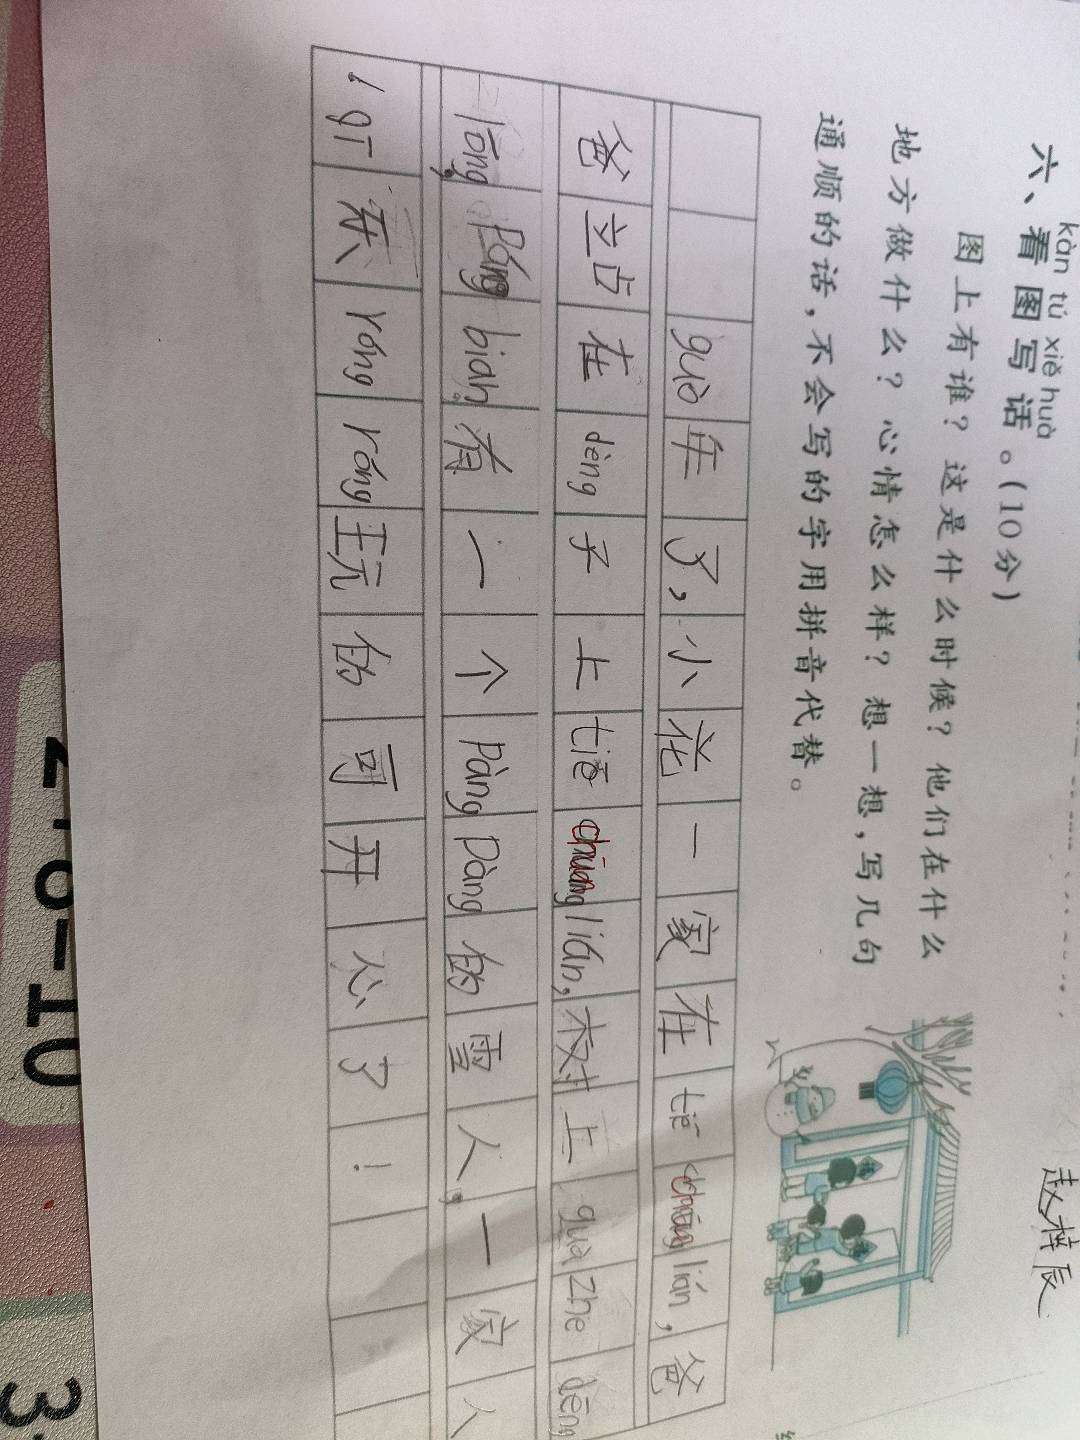 kàn tú xiě huà
六、看图写话。(10分)
图上有谁?这是什么时候?他们在什么
地方做什么?心情怎么样?想一想,写几句
通顺的话,不会写的字用拼音代替。
赵梓辰
guò年了,小花一家在tiē chuāng lián,爸
爸站在dèng子上tiē chuāng lián,树上guà zhe dēng
lóng, Páng biān有一个Pàng Pàng的雪人。一家人
qī乐róng róng玩的可开心了!